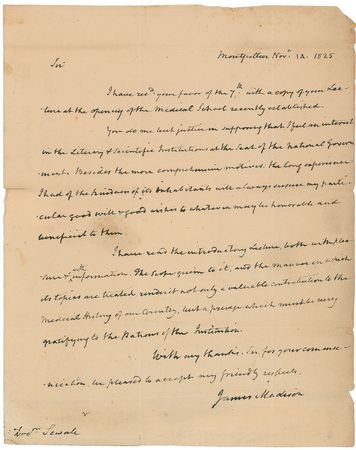 Montpellier Novr. 12. 1825
Sir
I have recd. your favor of the 7th. with a copy of your Lec-
ture at the opening of the Medical School recently established.
You do me but justice in supposing that I feel an interest
in the Literary & Scientific Institutions at the Seat of the National Govern
ment. Besides the more comprehensive motives, the long experience
I had of the kindness of its Inhabitants will always ensure my parti-
cular good will & good wishes to whatever may be honorable and
beneficial to them.
I have read the introductory Lecture, both with plea-
sure & with information. The scope given to it, and the manner in which
its topics are treated render it not only a valuable contribution to the
Medical History of our Country, but a presage which must be very
gratifying to the Patrons of the Institution.
With my thanks, Sir, for your commu-
nication, be pleased to accept my friendly respects.
James Madison
Doctr. Sewall